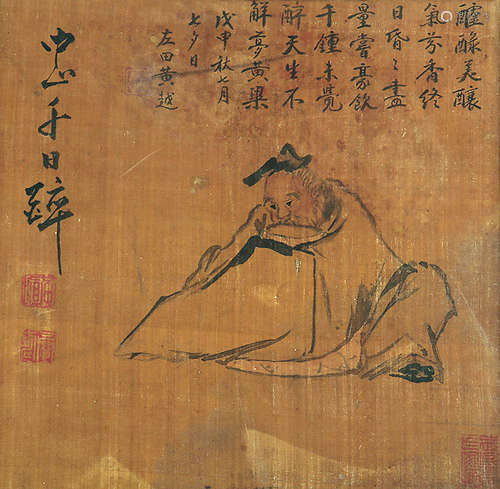 醽醁美釀
氣芬香終
日昏昏盡
量嘗豪飲
千鍾未覺
醉天生不
解夢黃粱
戊申秋七月
七夕日
左田黃越
中山千日醉